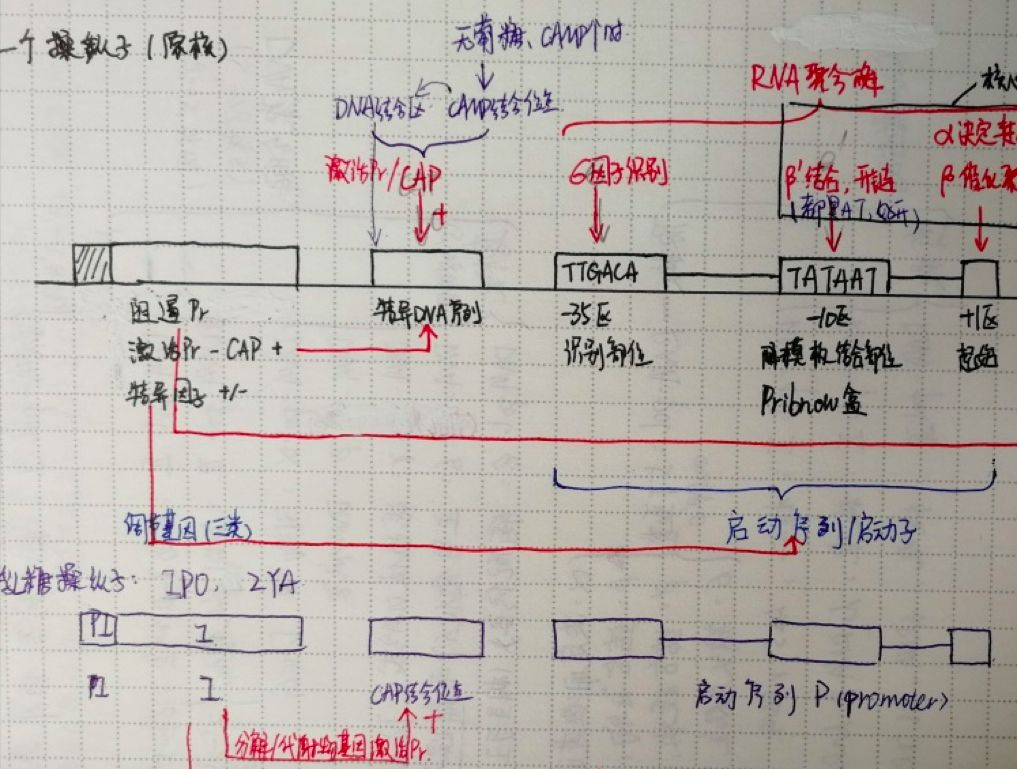 一个操纵子(原核)
无葡萄糖、CAMP个时
RNA聚合酶
核心
DNA结合区 CAMP结合位点
α决定转
激活Pr/CAP
6因子识别
β'结合,开链
β催化聚
+
(都是AT,好开)
TTGACA
TATAAT
阻遏Pr
特异DNA序列
-35区
-10区
+1区
激活Pr-CAP +
识别部位
解模板结合部位
起始
特异因子 +/-
Pribnow盒
调节基因(三类)
启动序列/启动子
乳糖操纵子: IPO, ZYA
PI
I
PI
I
CAP结合位点
启动序列 P(promoter)
+
分解/代谢物基因激活Pr